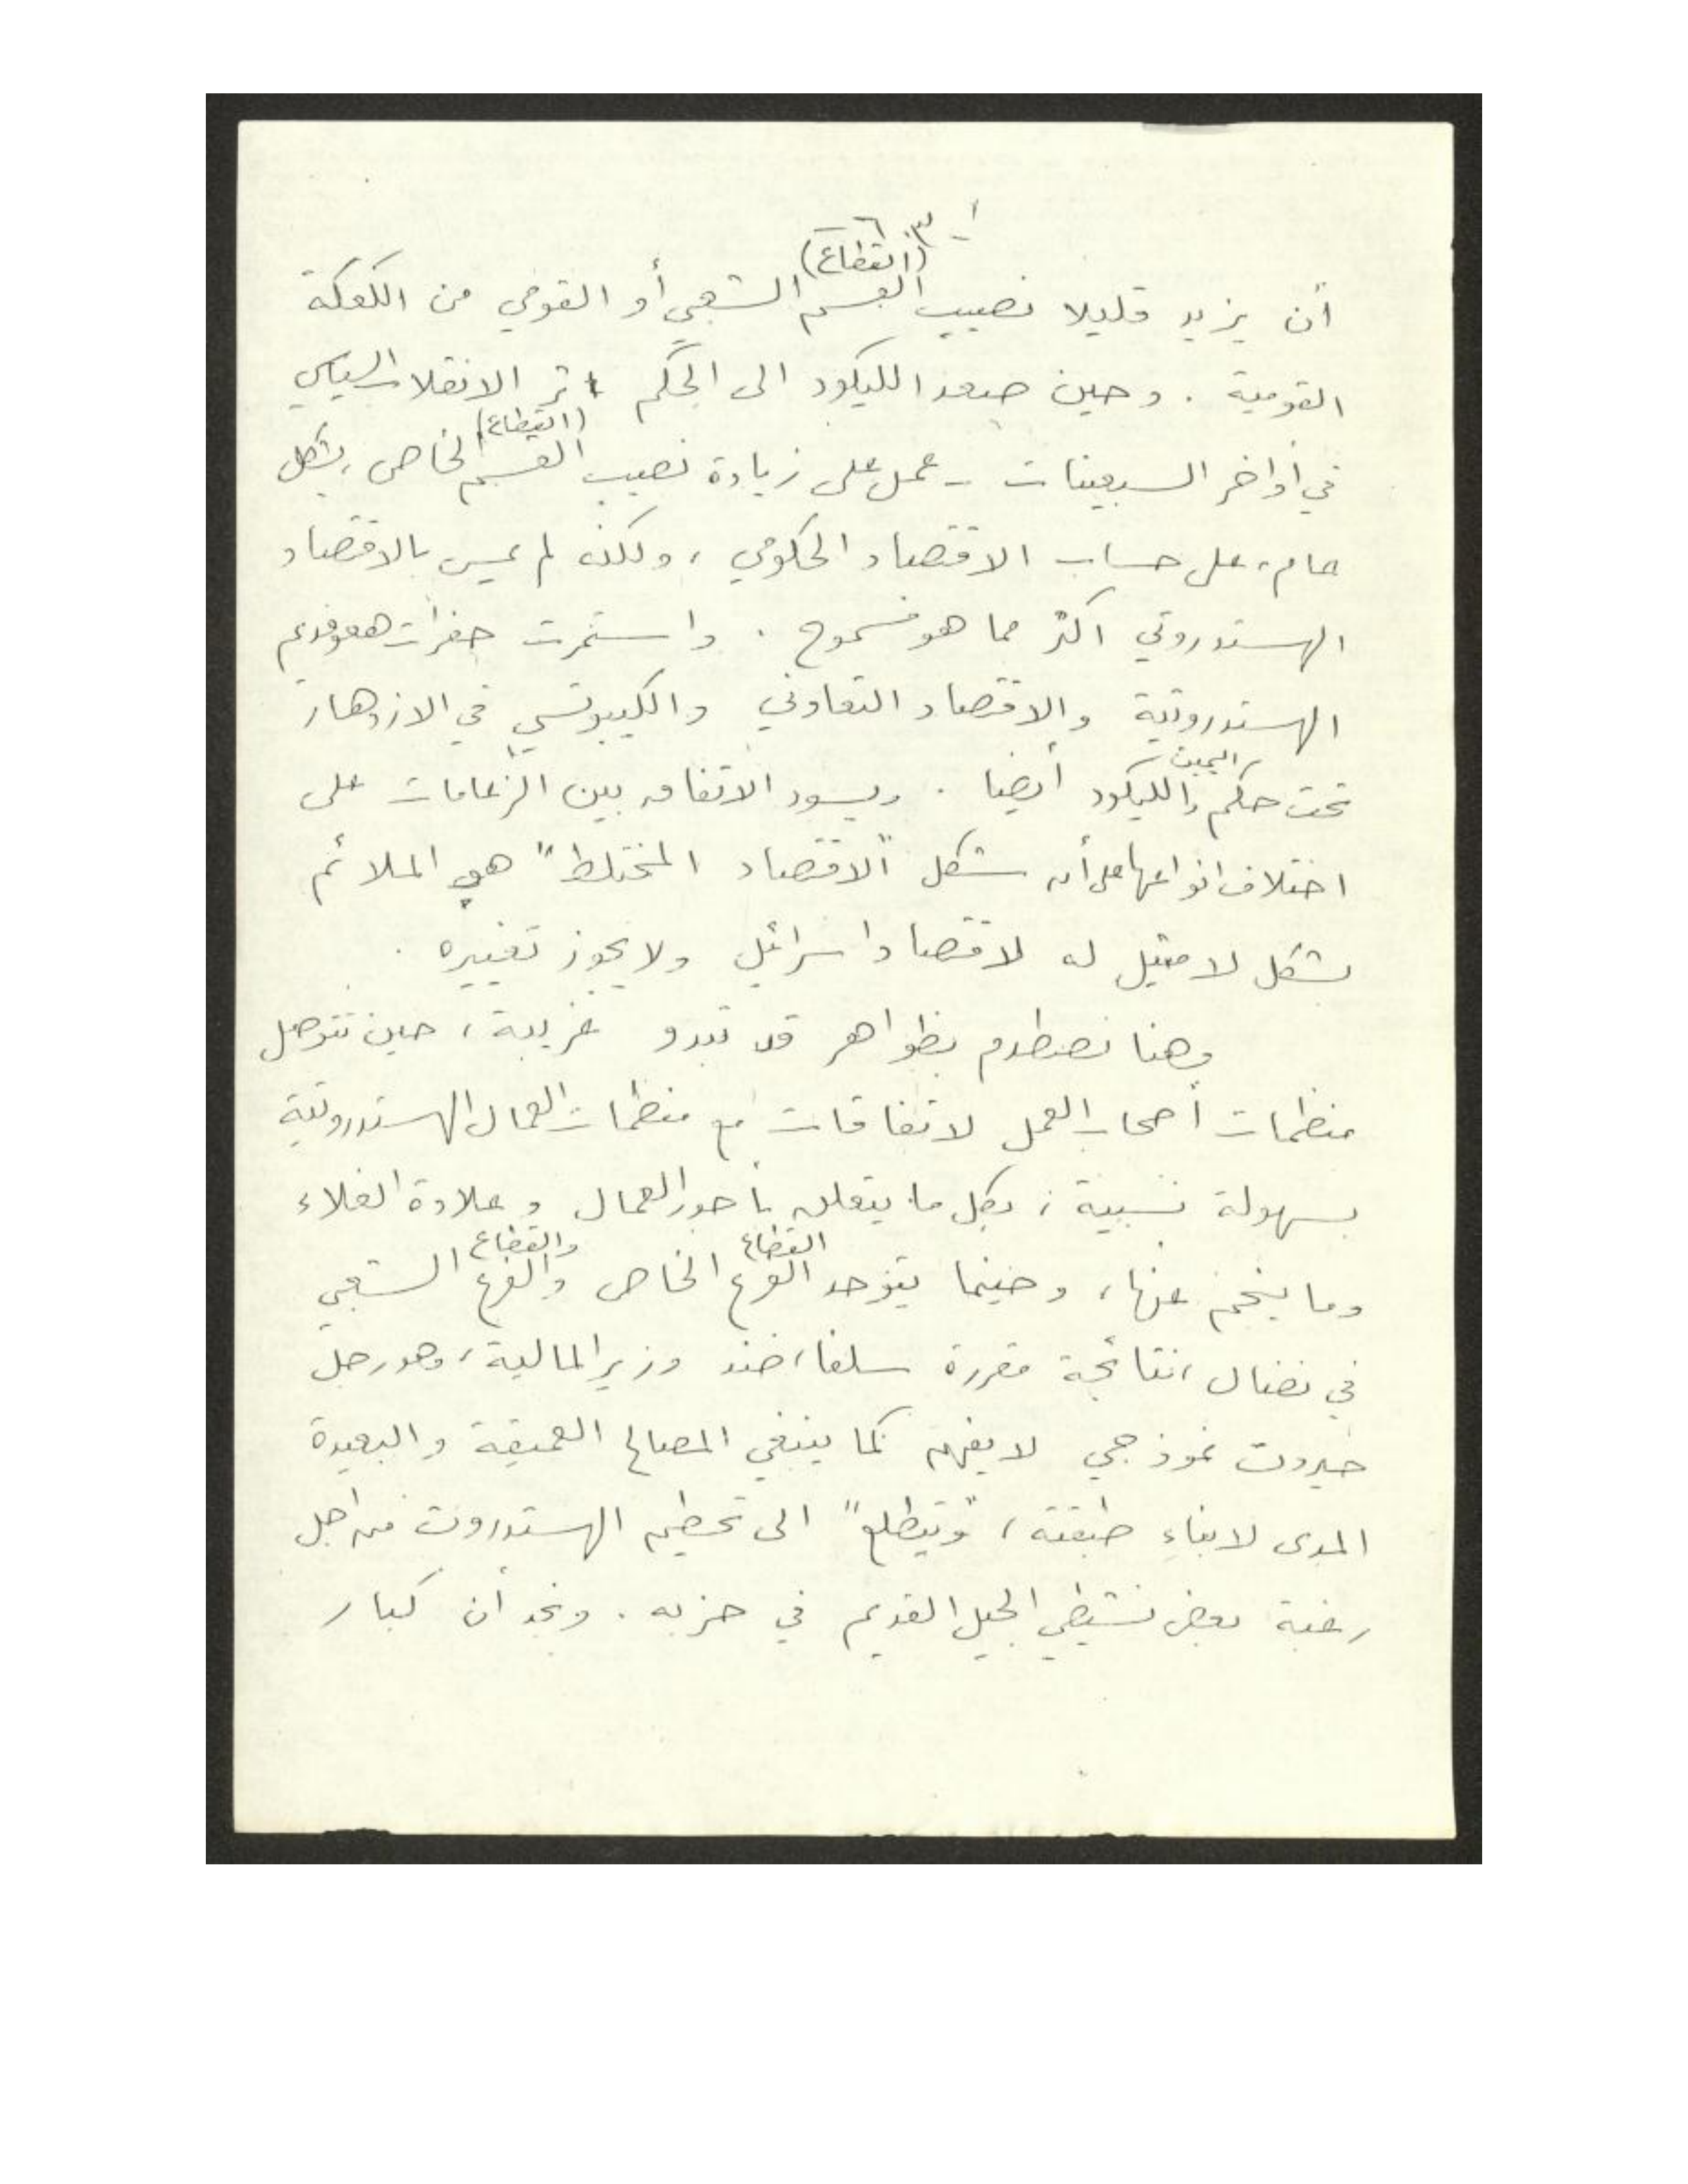 أ - ٣ - ٦
(القطاع)
أن يزيد قليلا نصيب القسم الشعبي أو القومي من الكعكة
القومية . وحين صعد الليكود الى الحكم اثر الانقلاب السياسي
(القطاع)
في أواخر السبعينات - عمل على زيادة نصيب القسم الخاص ، بشكل
عام ، على حساب الاقتصاد الحكومي ، ولكنه لم يمس بالاقتصاد
الهستدروتي اكثر مما هو مسموح . واستمرت حفرات هعوفديم
الهستدروتية والاقتصاد التعاوني والكيبوتسي في الازدهار
اليمين
تحت حكم والليكود أيضا . ويسود الاتفاق بين الزعامات على
اختلاف انواعها على أن شكل "الاقتصاد المختلط" هو الملائم
بشكل لا مثيل له لاقتصاد اسرائيل ولا يجوز تغييره .
وهنا نصطدم بظواهر قد تبدو غريبة ، حين تتوصل
منظمات أصحاب العمل لاتفاقات مع منظمات العمال الهستدروتية
بسهولة نسبية ، بكل ما يتعلق بأجور العمال وعلاوة الغلاء
القطاع والقطاع
وما ينجم عنها ، وحينما يتوحد الفرع الخاص والفرع الشعبي
في نضال ، نتائجة مقررة سلفا ، ضد وزير المالية ، وهو رجل
حيروت نموذجي لا يفهم كما ينبغي المصالح العميقة والبعيدة
المدى لابناء طبقته ، "ويتطلع" الى تحطيم الهستدروت من اجل
رغبة بعض نشيطي الجيل القديم في حزبه . ونجد أن كبار